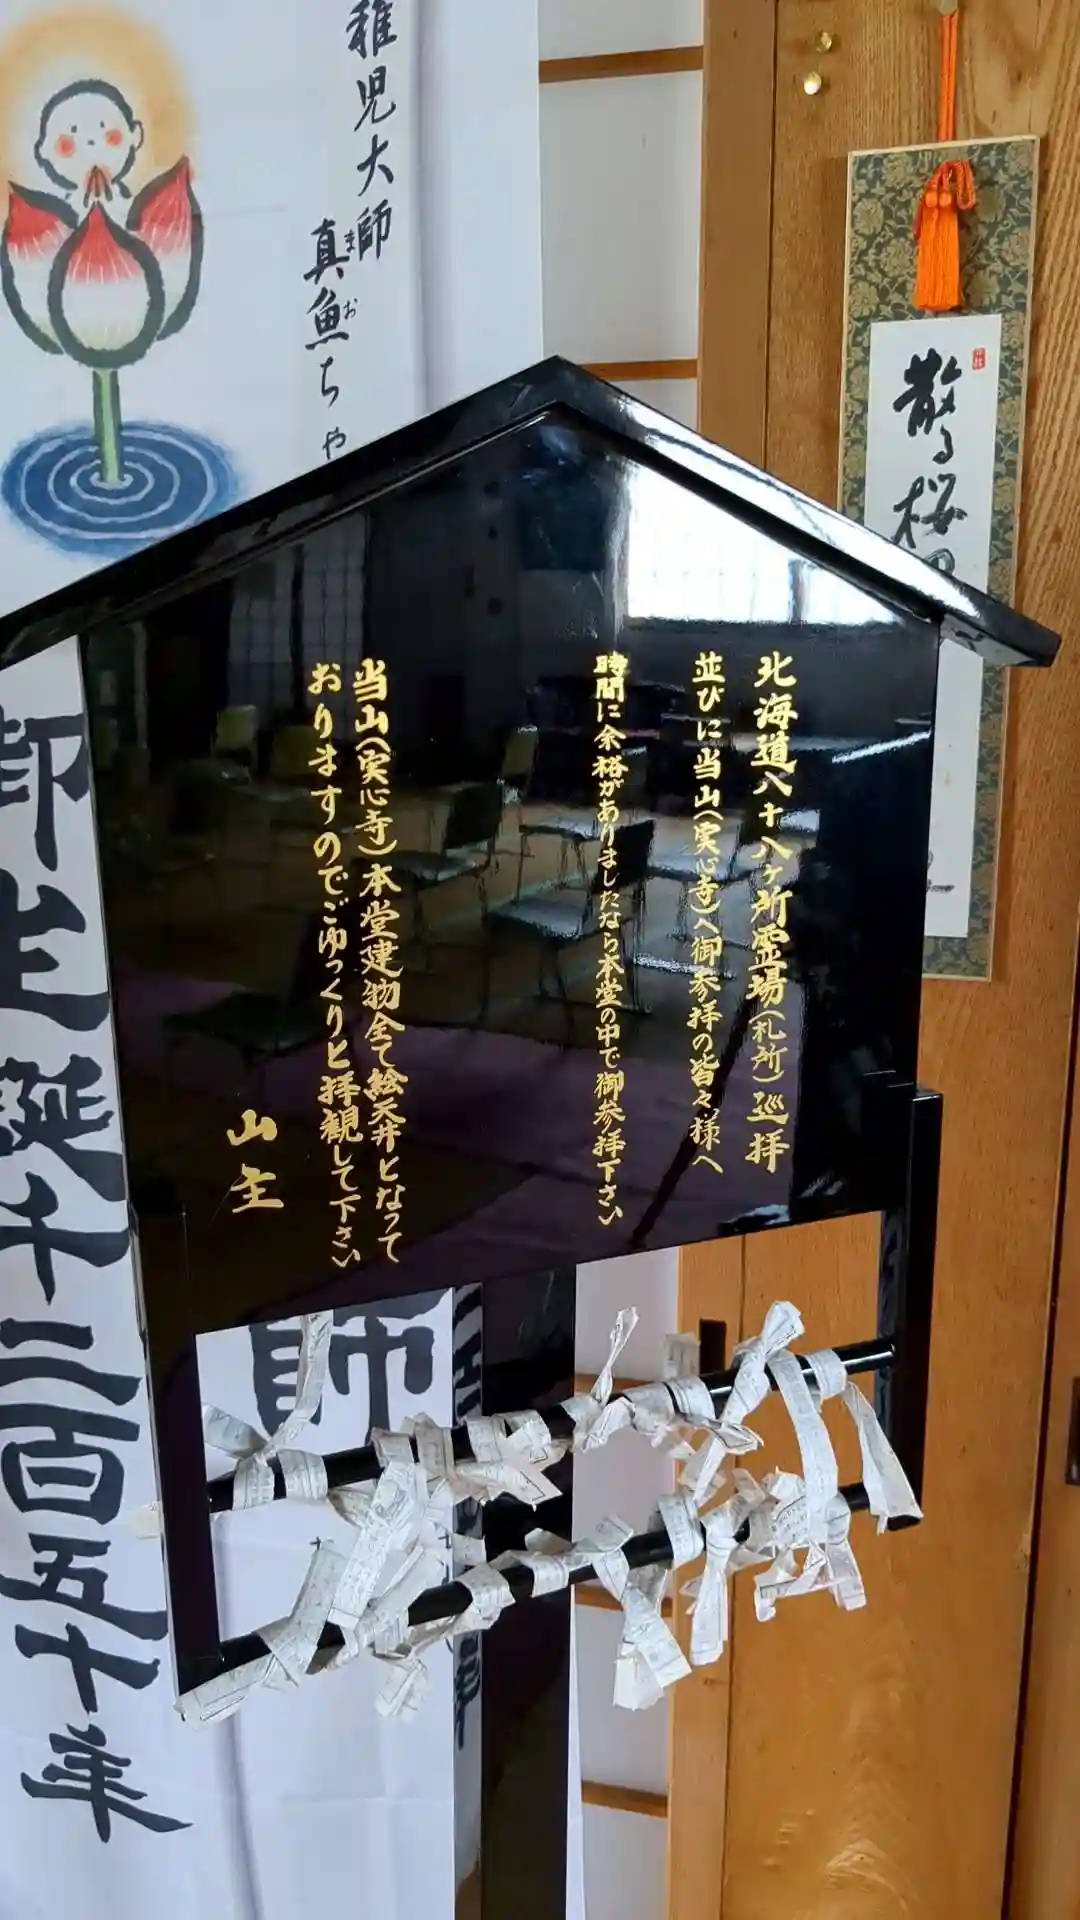 北海道八十八ヶ所霊場(札所)巡拝
並びに当山(実心寺)へ御参拝の皆々様へ
時間に余裕がありましたなら本堂の中で御参拝下さい
当山(実心寺)本堂建物全て絵天井となって
おりますのでごゆっくりと拝観して下さい
山主
稚児大師
真魚ちゃ
まお
散る桜
御生誕千二百五十年
師